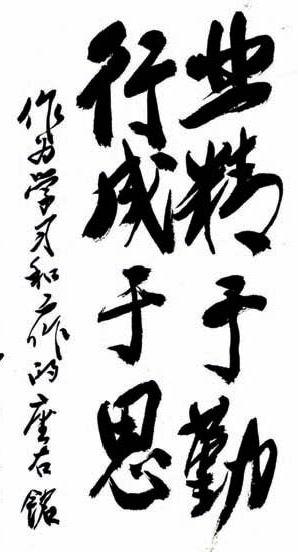 业精于勤
行成于思
作为学习和工作的座右铭